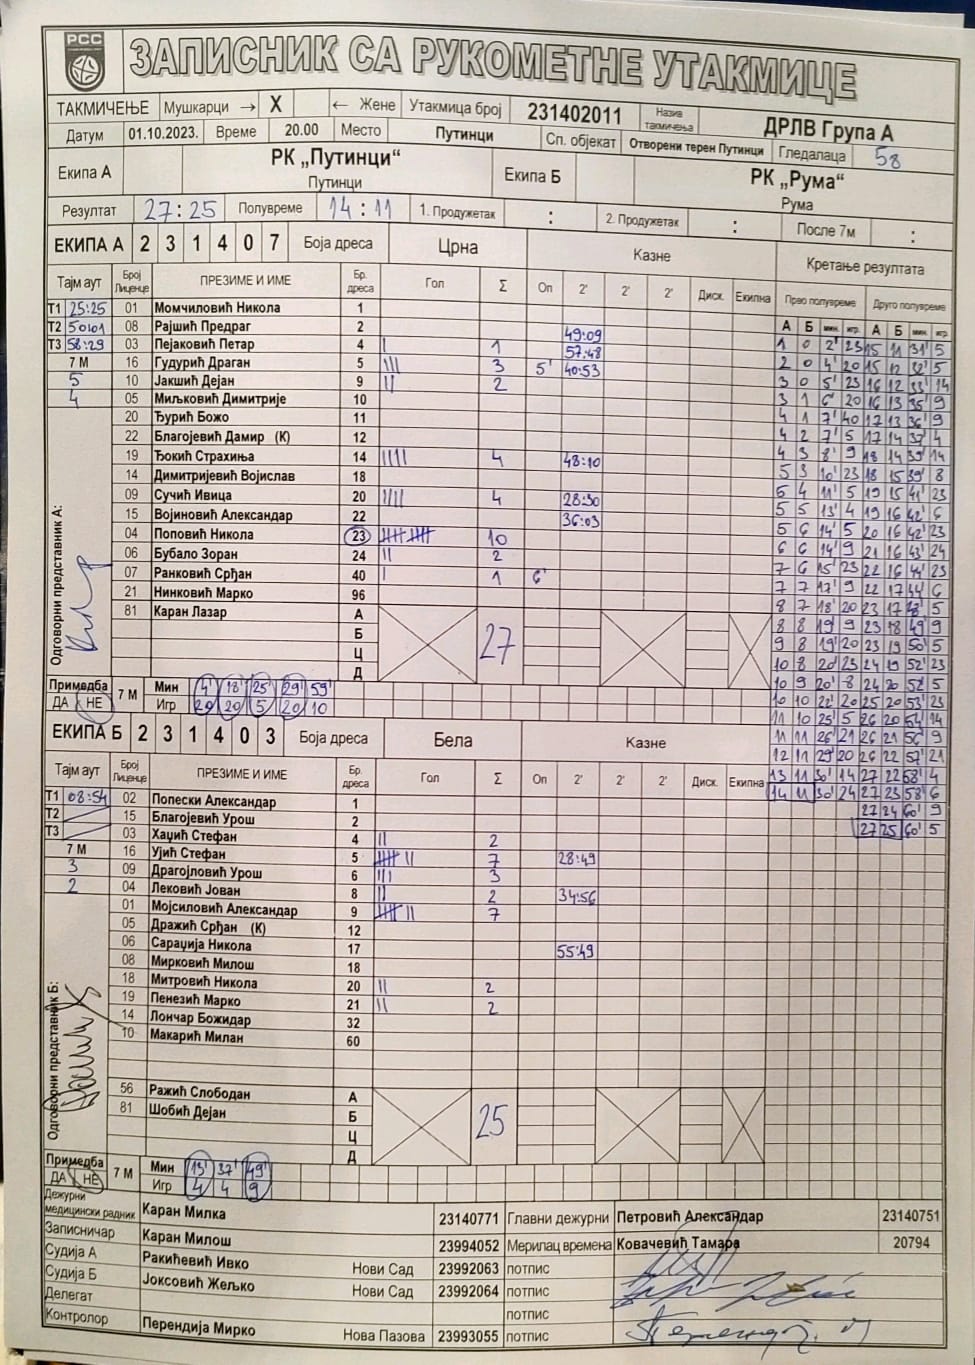 РСС
ЗАПИСНИК СА РУКОМЕТНЕ УТАКМИЦЕ
ТАКМИЧЕЊЕ Мушкарци → X ← Жене Утакмица број 231402011 Назив такмичења ДРЛВ Група А
Датум 01.10.2023. Време 20.00 Место Путинци Сп. објекат Отворени терен Путинци Гледалаца 58
Екипа А РК „Путинци“ Путинци Екипа Б РК „Рума“ Рума
Резултат 27:25 Полувреме 14:11 1. Продужетак : 2. Продужетак : После 7м :
ЕКИПА А 2 3 1 4 0 7 Боја дреса Црна Казне Кретање резултата
Тајм аут Број Лиценце ПРЕЗИМЕ И ИМЕ Бр. дреса Гол Σ Оп 2' 2' 2' Диск. Екипна Прво полувреме Друго полувреме
А Б мин. игр. А Б мин. игр.
T1 25:25 01 Момчиловић Никола 1
T2 50:01 08 Рајшић Предраг 2 49:09
T3 58:29 03 Пејаковић Петар 4 | 1 57:48 1 0 2' 23 15 11 31' 5
7 М 16 Гудурић Драган 5 ||| 3 5' 40:53 2 0 4' 20 15 12 32' 5
5 10 Јакшић Дејан 9 || 2 3 0 5' 23 16 12 33' 14
4 05 Миљковић Димитрије 10 3 1 6' 20 16 13 35' 9
20 Ђурић Божо 11 4 1 7' 40 17 13 36' 9
22 Благојевић Дамир (К) 12 4 2 7' 5 17 14 37' 4
19 Ђокић Страхиња 14 |||| 4 48:10 4 3 8' 9 18 14 39' 14
14 Димитријевић Војислав 18 5 3 10' 23 18 15 39' 8
09 Сучић Ивица 20 |||| 4 28:30 5 4 11' 5 19 15 41' 23
15 Војиновић Александар 22 36:03 5 5 13' 4 19 16 42' 6
04 Поповић Никола 23 10 5 6 14' 5 20 16 42' 23
06 Бубало Зоран 24 || 2 6 6 14' 9 21 16 43' 24
07 Ранковић Срђан 40 | 1 6' 7 6 15' 23 22 16 44' 23
21 Нинковић Марко 96 7 7 17' 9 22 17 44' 6
81 Каран Лазар А 8 7 18' 20 23 17 48' 5
Б 27 8 8 19' 9 23 18 49' 9
Ц 9 8 19' 20 23 19 50' 5
Д 10 8 20' 23 24 19 52' 23
Одговорни представник А:
Примедба 7 М Мин 4' 18' 25' 29' 59' 10 9 20' 8 24 20 52' 5
ДА НЕ Игр 20 20 5 20 10 10 10 22' 20 25 20 53' 23
11 10 25' 5 26 20 54' 14
ЕКИПА Б 2 3 1 4 0 3 Боја дреса Бела Казне 11 11 26' 21 26 21 56' 9
12 11 29' 20 26 22 57' 21
Тајм аут Број Лиценце ПРЕЗИМЕ И ИМЕ Бр. дреса Гол Σ Оп 2' 2' 2' Диск. Екипна 13 11 30' 14 27 22 58' 4
T1 08:54 02 Полески Александар 1 14 11 30' 24 27 23 58' 6
T2 15 Благојевић Урош 2 27 24 60' 9
T3 03 Хаџић Стефан 4 || 2 27 25 60' 5
7 М 16 Ујић Стефан 5 7 28:49
3 09 Драгојловић Урош 6 ||| 3
2 04 Лековић Јован 8 || 2 34:56
01 Мојсиловић Александар 9 7
05 Дражић Срђан (К) 12
06 Сараџија Никола 17 55:49
08 Мирковић Милош 18
18 Митровић Никола 20 || 2
19 Пенезић Марко 21 || 2
14 Лончар Божидар 32
10 Макарић Милан 60
56 Ражић Слободан А
81 Шобић Дејан Б 25
Ц
Д
Одговорни представник Б:
Примедба 7 М Мин 13' 37' 49'
ДА НЕ Игр 4 4 9
Дежурни медицински радник Каран Милка 23140771 Главни дежурни Петровић Александар 23140751
Записничар Каран Милош 23994052 Мерилац времена Ковачевић Тамара 20794
Судија А Ракићевић Ивко Нови Сад 23992063 потпис
Судија Б Јоксовић Жељко Нови Сад 23992064 потпис
Делегат потпис
Контролор Перендија Мирко Нова Пазова 23993055 потпис